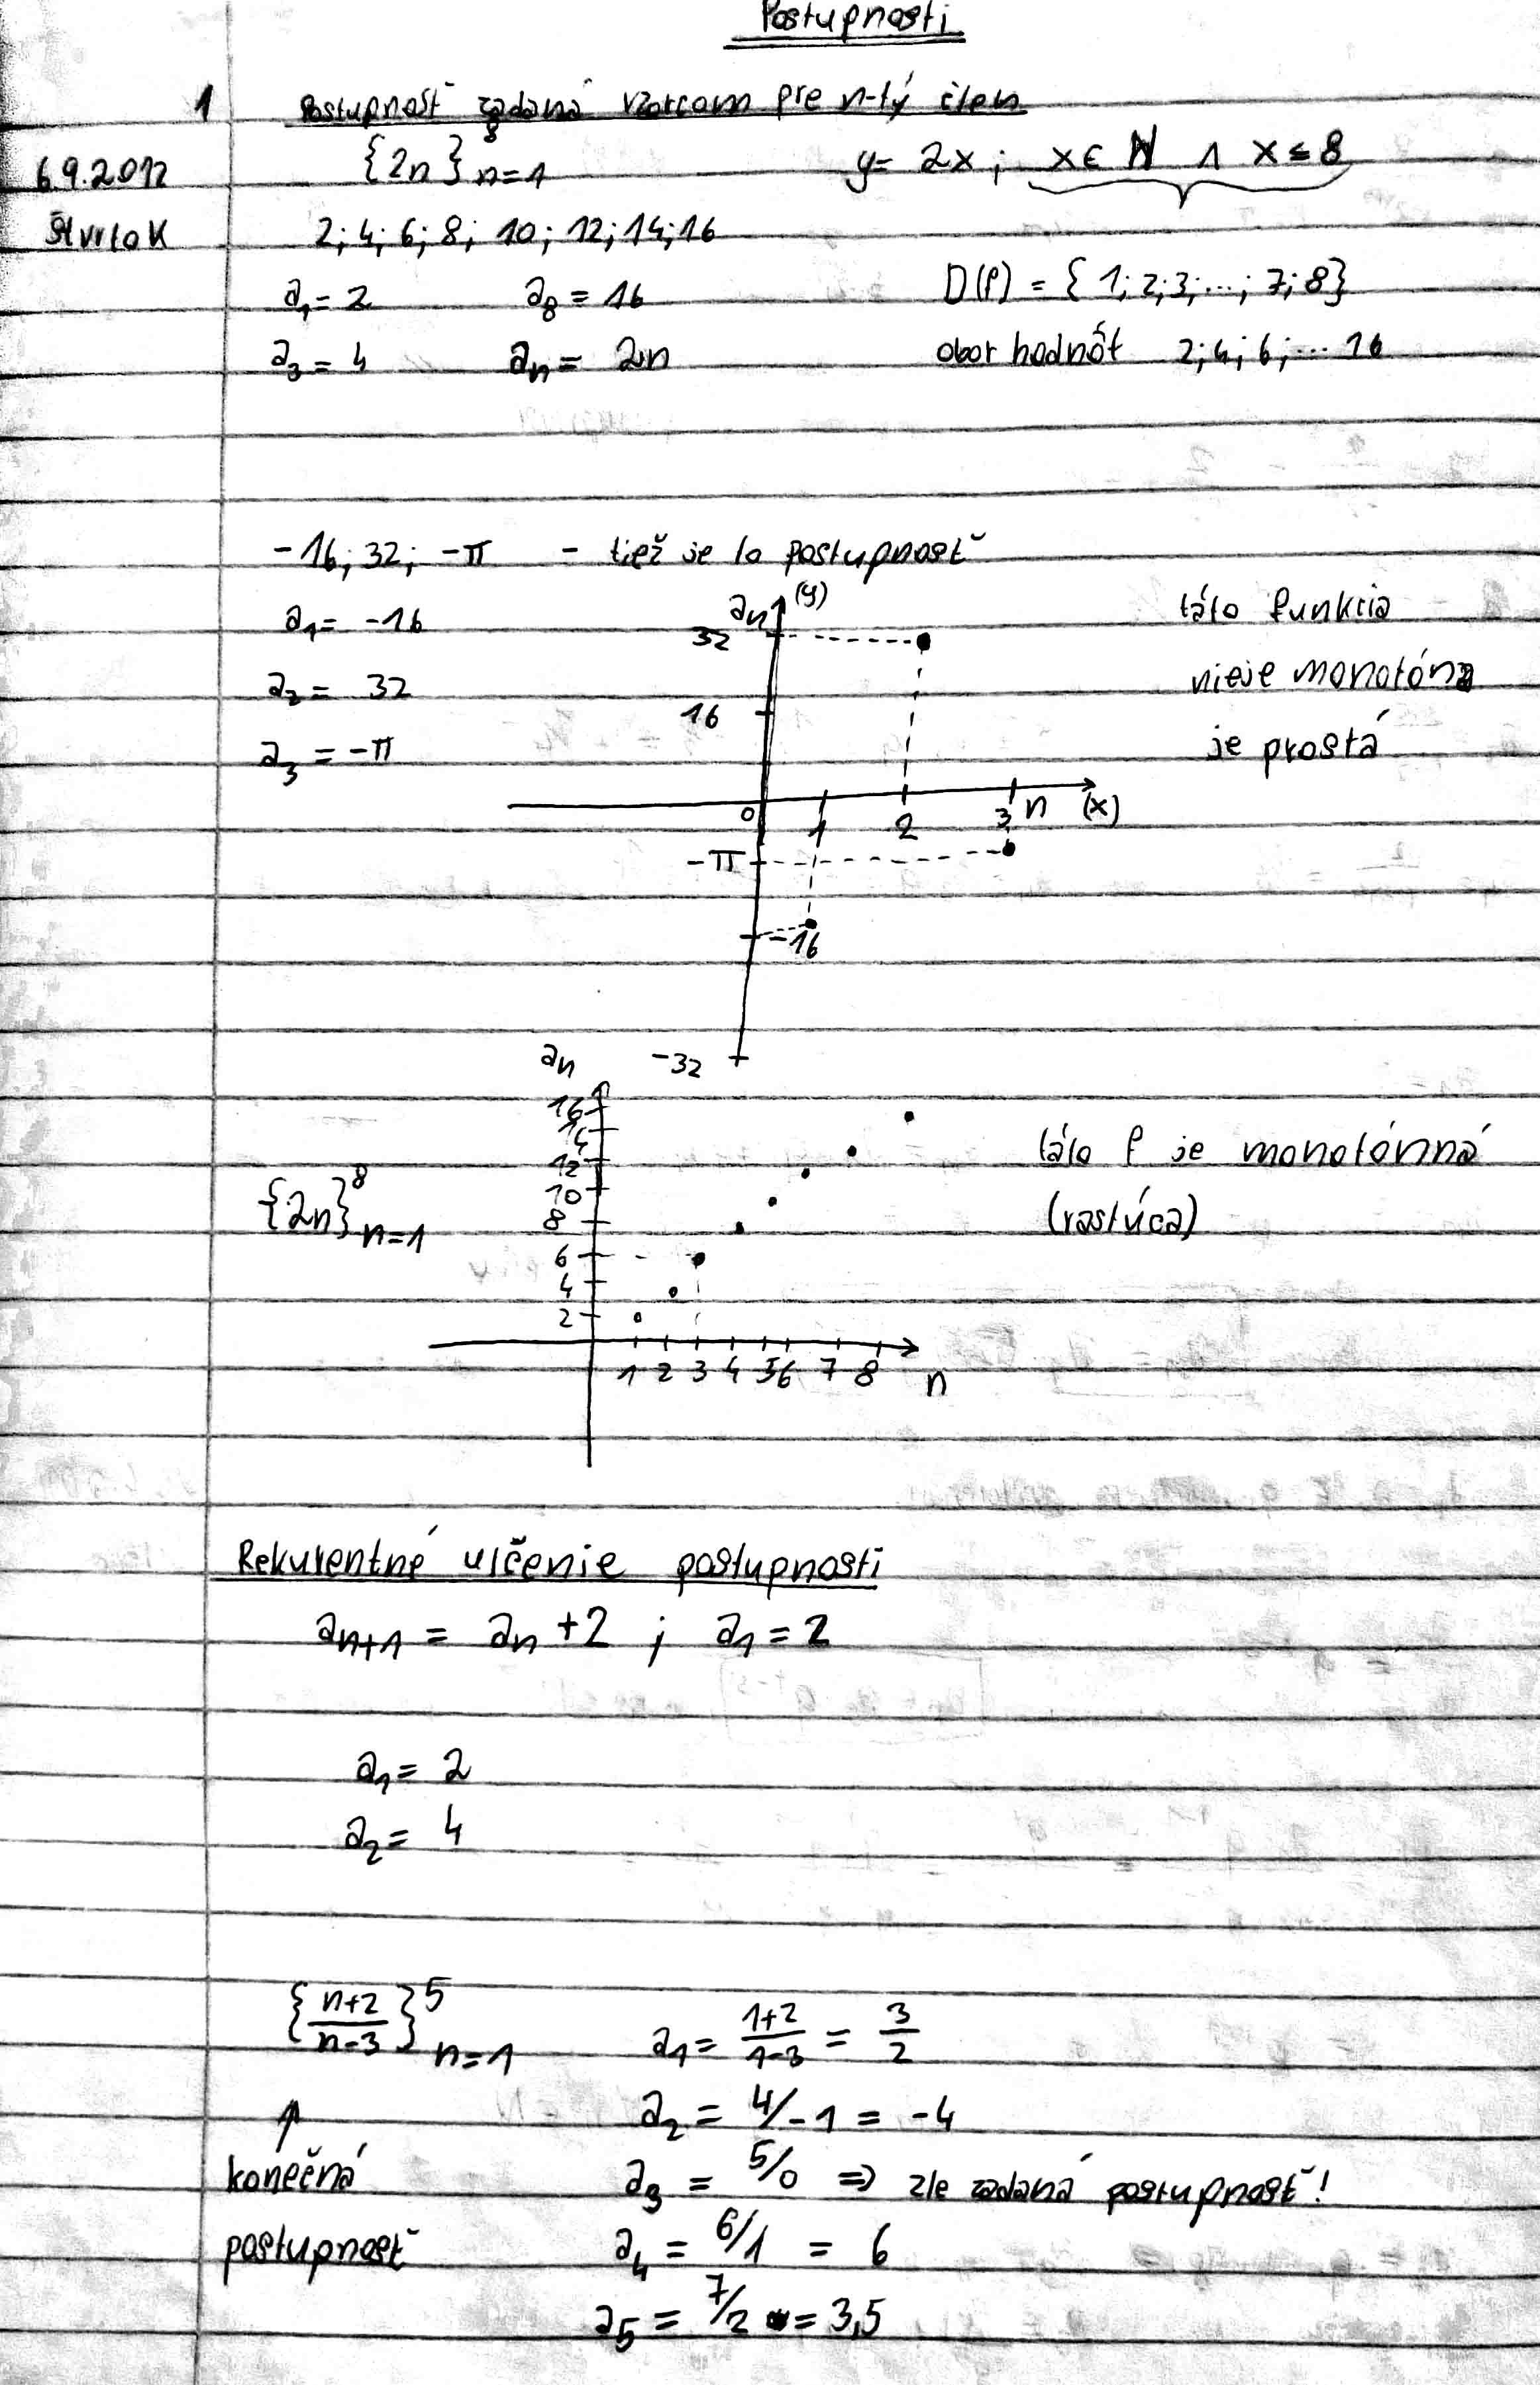 Postupnosti
1 Postupnosť zadaná vzorcom pre n-tý člen
6.9.2012 {2n}⁸ₙ₌₁ y = 2x ; x ∈ N ∧ x ≤ 8
Štvrtok 2; 4; 6; 8; 10; 12; 14; 16
a₁ = 2 a₈ = 16 D(f) = { 1; 2; 3; ...; 7; 8}
a₃ = 4 aₙ = 2n obor hodnôt 2; 4; 6; ... 16
-16; 32; -π - tiež je to postupnosť
a₁ = -16
a₂ = 32
a₃ = -π
aₙ (y)
32
16
0 1 2 3 n (x)
-π
-16
-32
táto funkcia
nieje monotónna
je prostá
aₙ
16
14
12
10
8
6
4
2
1 2 3 4 5 6 7 8 n
{2n}⁸ₙ₌₁
táto f je monotónná
(rastúca)
Rekurentné určenie postupnosti
aₙ₊₁ = aₙ + 2 ; a₁ = 2
a₁ = 2
a₂ = 4
{(n+2)/(n-3)}⁵ₙ₌₁ a₁ = (1+2)/(1-3) = 3/2
↑ a₂ = 4/-1 = -4
konečná a₃ = 5/0 => zle zadaná postupnosť!
postupnosť a₄ = 6/1 = 6
a₅ = 7/2 = 3,5